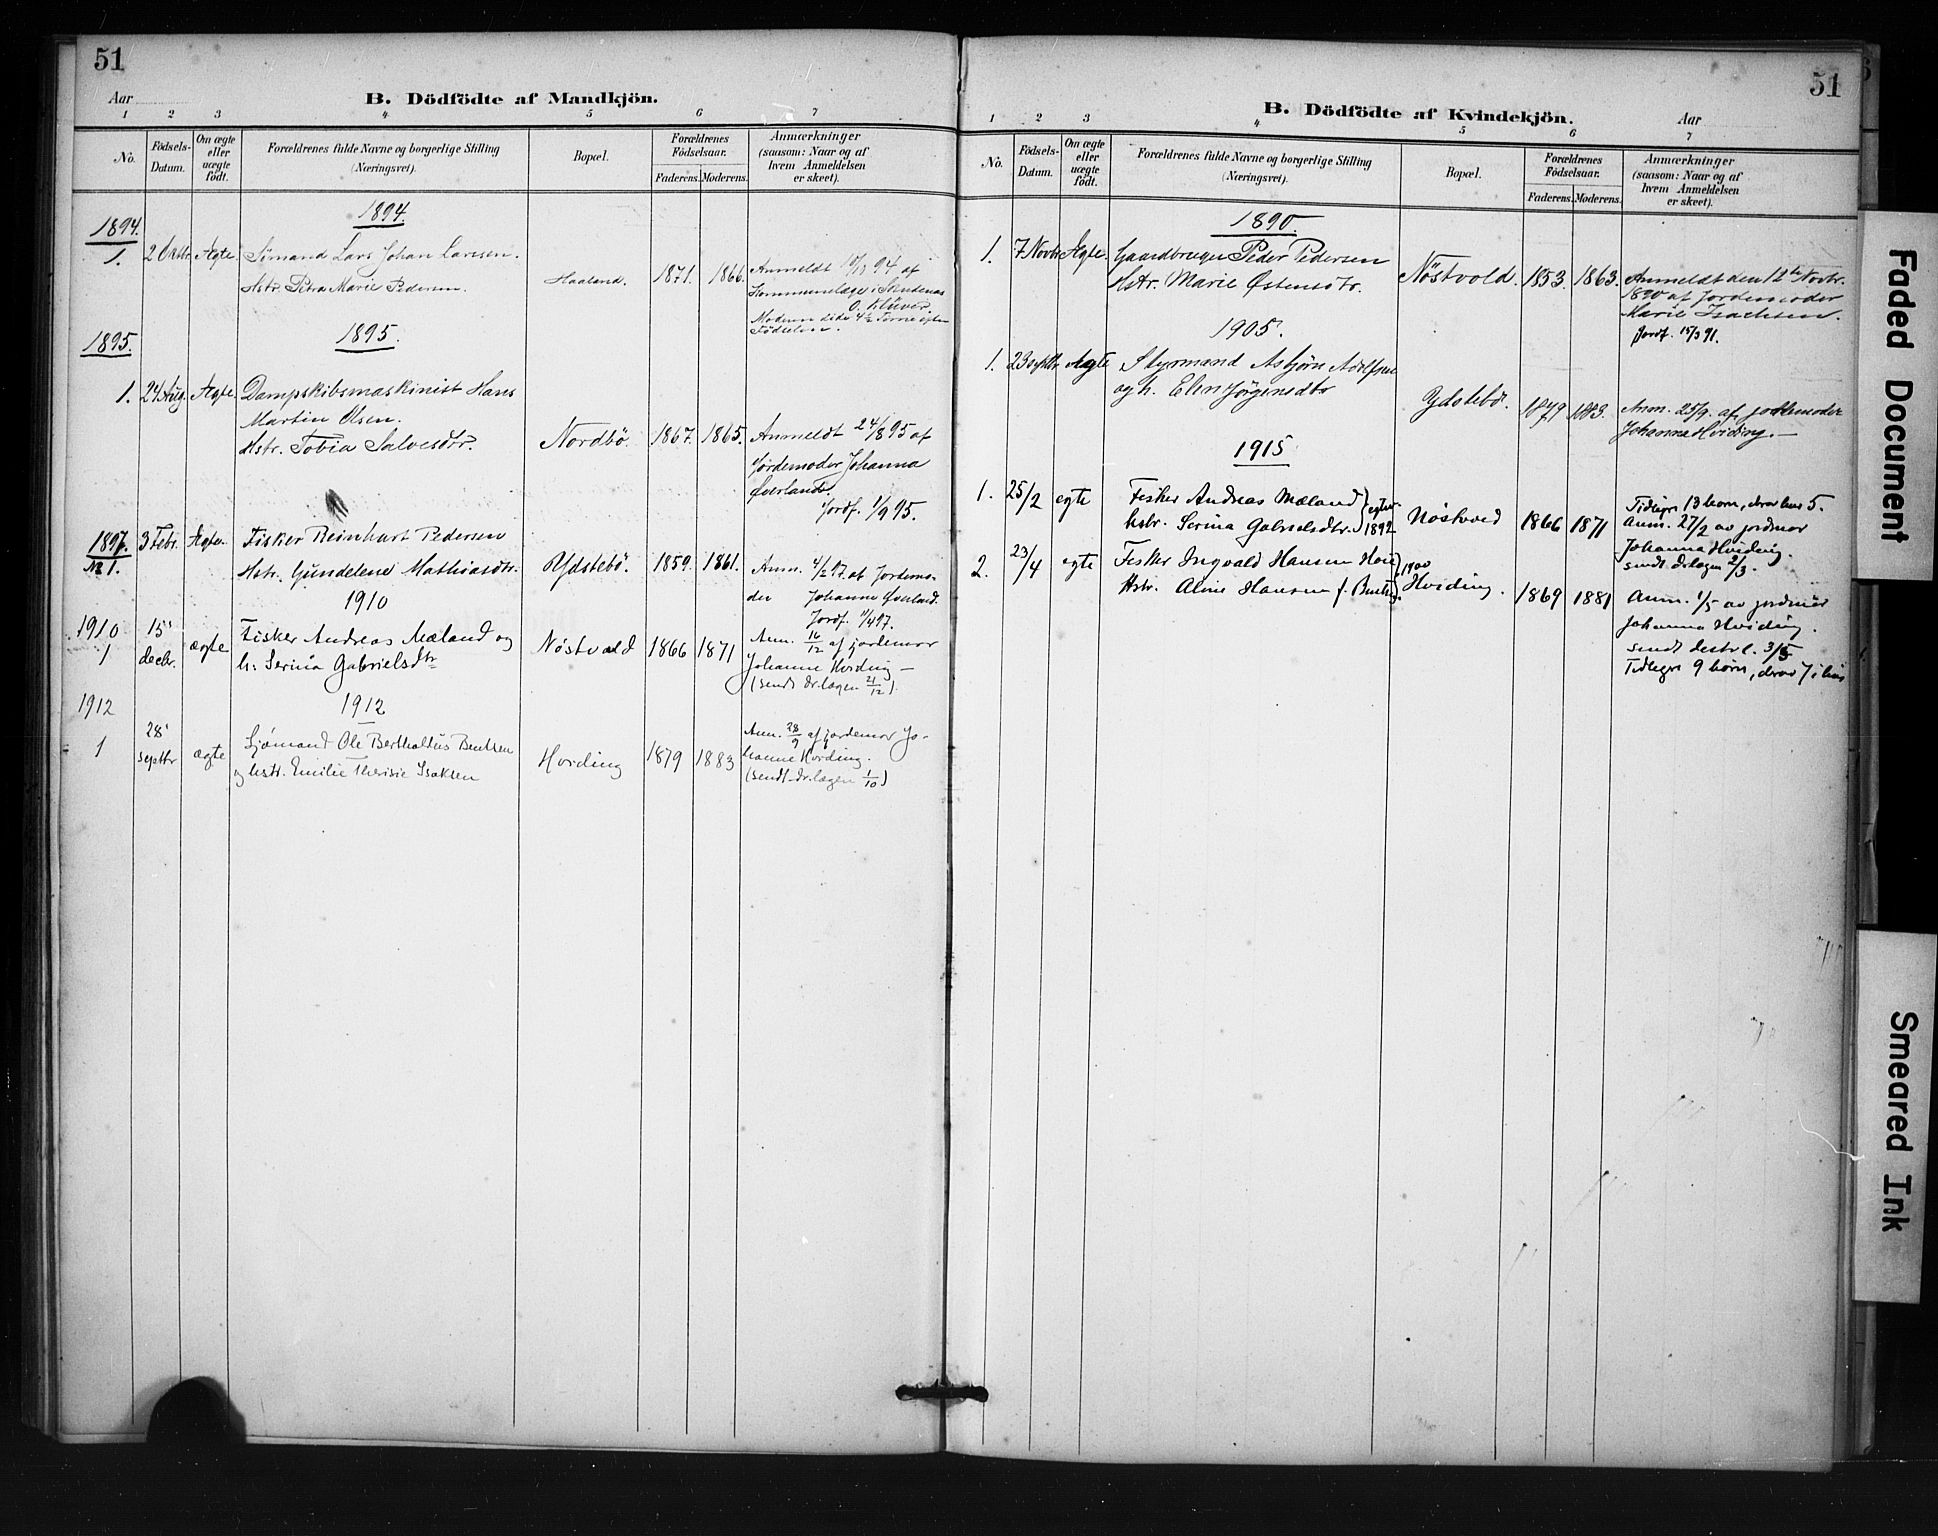 51
Aar
B. Dödfödte af Mandkjön.
1 2 3 4 5 6 7
No.
Födsels-Datum.
Om ægte eller uægte födt.
Forældrenes fulde Navne og borgerlige Stilling
(Næringsvei).
Bopæl.
Forældrenes Födselsaar.
Faderens. Moderens.
Anmærkninger
(saasom: Naar og af
hvem Anmeldelsen
er skeet).
1894. 1894.
1. 2 Oktbr. Ægte. Sömand Lars Johan Larssen.
Hstr. Petra Marie Pedersen. Haaland. 1871. 1866.
Anmeldt 94 af
Kommunelæge i
Moderen
Födselen.
1895. 1895.
1. 24 Aug. Ægte. Dampskibsmaskinist Hans
Martin Olsen.
Hstr. Tobia Salvesdtr. Nordbö. 1867. 1865.
Anmeldt 24/8 95 af
Jordemoder Johanna
Överland.
Jordf. 1/9 95.
1897. 3 Febr. Ægte. Fisker Reinhart Pedersen
No 1. Hstr. Gundelene Mathiasdtr. Ydstebö. 1859. 1861.
Anm. 4/2 97 af Jordemo-
der Johanne Överland.
Jordf. 97.
1910
1910 15' Fisker Andreas Mæland og
1 decbr. ægte h. Serina Gabrielsdtr Nöstvold 1866 1871
Anm. 16/12 af jordemor
Johanne Hviding —
(sendt dr.lagen 21/12).
1912 1912
1 28' septbr ægte Sjömand Ole Bertholdus Bentsen
og hstr. Emilie Therisie Isaksen Hviding 1879 1883
Anm. 28/9 af jordemor Jo-
hanne Hviding.
(sendt dr.lægen 1/10)
51
B. Dödfödte af Kvindekjön.
Aar
1 2 3 4 5 6 7
No.
Födsels-Datum.
Om ægte eller uægte födt.
Forældrenes fulde Navne og borgerlige Stilling
(Næringsvei).
Bopæl.
Forældrenes Födselsaar.
Faderens. Moderens.
Anmærkninger
(saasom: Naar og af
hvem Anmeldelsen
er skeet).
1890.
1. 7 Novbr. Ægte. Gaardbruger Peder Pedersen
Hstr. Marie Østensdtr. Nöstvold. 1853. 1863.
Anmeldt den 12te Novbr.
1890 af Jordemoder
Marie Isachsen.
Jordf. 15/3 91.
1905.
1. 23 septbr Ægte Styrmand Asbjörn Adolfsen
og h. Elen Jörgensdtr Ydstebö. 1879 1883.
Anm. 25/9. af jordemoder
Johanna Hviding. —
1915
1. 25/2 egte Fisker Andreas Mæland
hstr. Serina Gabrielsdtr. 1892 Nöstvold 1866 1871
Tidligere 13 börn, derav 5.
Anm. 27/2 av jordmor
Johanna Hviding.
sendt dr.lagen 2/3.
2. 23/4 egte Fisker Ingvald Hansen
Hstr. Aline Hansen f. 1900 Hviding. 1869 1881
Anm. 1/5 av jordmor
Johanna Hviding.
sendt 3/5
Tidligere 9 börn, derav 7 i live
Faded Document
Smeared Ink